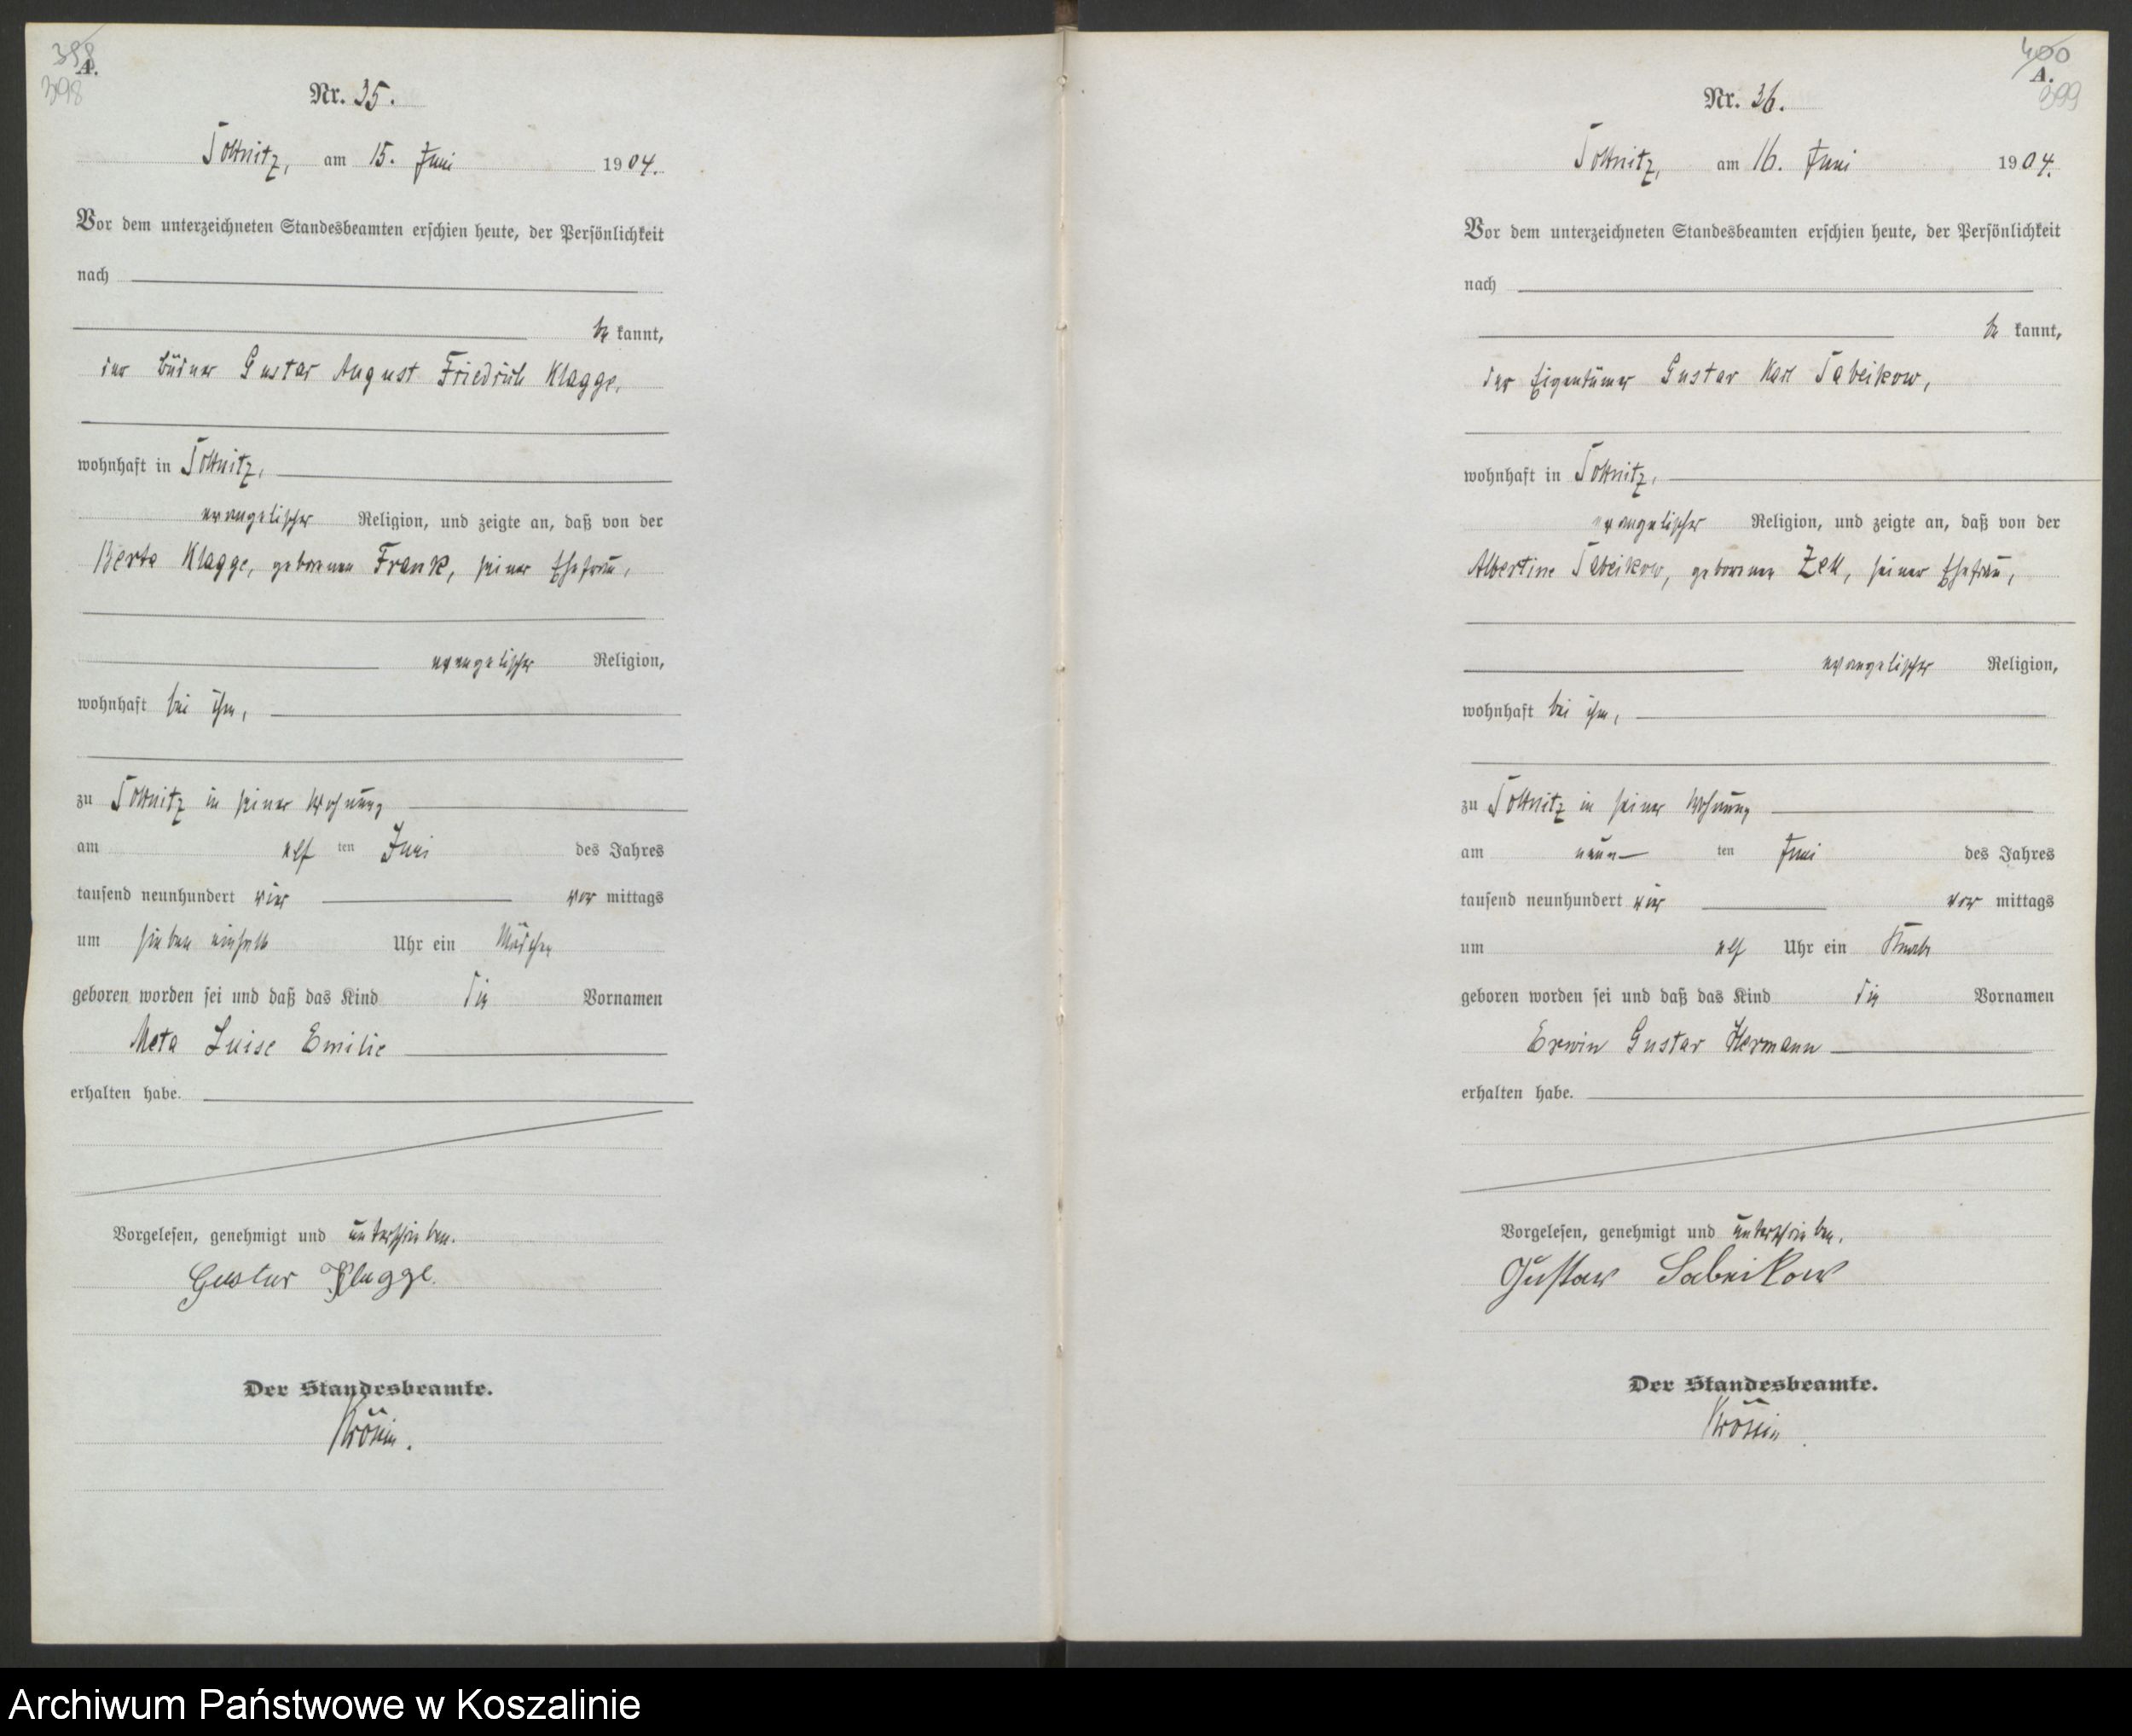 398
A.
398
Nr. 35.
Soltnitz, am 15. Juni 1904.
Vor dem unterzeichneten Standesbeamten erschien heute, der Persönlichkeit
nach
be kannt,
der Büdner Gustav August Friedrich Klagge,
wohnhaft in Soltnitz,
evangelischer Religion, und zeigte an, daß von der
Berta Klagge, geborenen Frank, seiner Ehefrau,
evangelischer Religion,
wohnhaft bei ihm,
zu Soltnitz in seiner Wohnung
am elf ten Juni des Jahres
tausend neunhundert vier vor mittags
um sieben einhalb Uhr ein Mädchen
geboren worden sei und daß das Kind die Vornamen
Meta Luise Emilie
erhalten habe.
Vorgelesen, genehmigt und unterschrieben.
Gustav Klagge.
Der Standesbeamte.
Krösin.
400
A.
399
Nr. 36.
Soltnitz, am 16. Juni 1904.
Vor dem unterzeichneten Standesbeamten erschien heute, der Persönlichkeit
nach
be kannt,
der Eigentümer Gustav Karl Sabeikow,
wohnhaft in Soltnitz,
evangelischer Religion, und zeigte an, daß von der
Albertine Sabeikow, geborenen Zell, seiner Ehefrau,
evangelischer Religion,
wohnhaft bei ihm,
zu Soltnitz in seiner Wohnung
am neun ten Juni des Jahres
tausend neunhundert vier vor mittags
um elf Uhr ein Knabe
geboren worden sei und daß das Kind die Vornamen
Erwin Gustav Hermann
erhalten habe.
Vorgelesen, genehmigt und unterschrieben.
Gustav Sabeikow
Der Standesbeamte.
Krösin
Archiwum Państwowe w Koszalinie